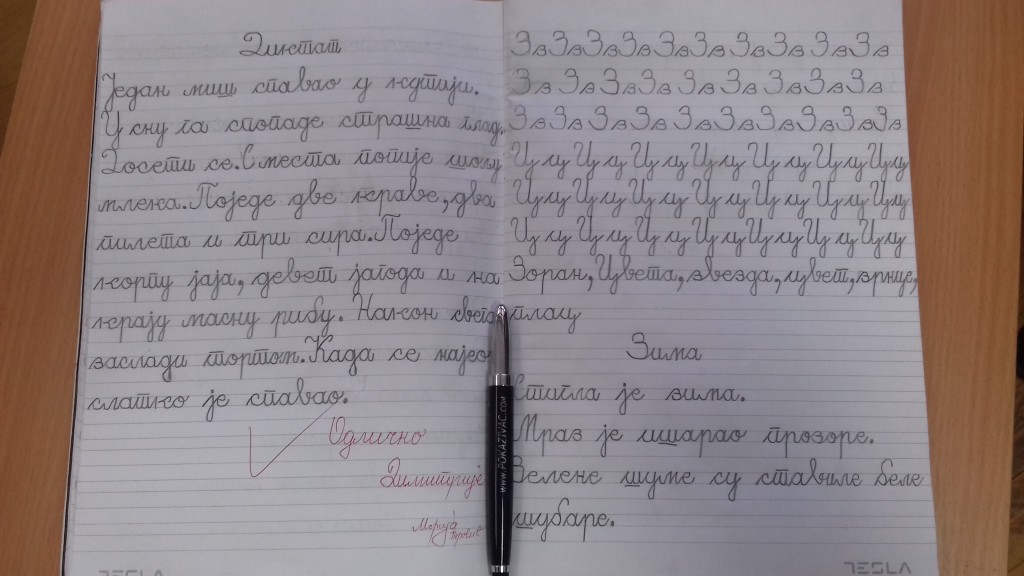 Диктат
Један миш спавао у кутији.
У сну га спопаде страшна глад.
Досети се. С места попије шољу
млека. Поједе две краве, два
пилета и три сира. Поједе
корпу јаја, девет јагода и на
крају масну рибу. Након свега
заслади тортом. Када се најео
слатко је спавао.
Одлично
Димитрије
Марија
Зз Зз Зз Зз Зз Зз Зз Зз Зз Зз
Зз Зз Зз Зз Зз Зз Зз Зз Зз
Зз Зз Зз Зз Зз Зз Зз Зз Зз Зз
Цц Цц Цц Цц Цц Цц Цц
Цц Цц Цц Цц Цц Цц Цц
Цц Цц Цц Цц Цц Цц Цц
Зоран, Цвета, звезда, цвет, зрнце,
плац
Зима
Стигла је зима.
Мраз је ишарао прозоре.
Зелене шуме су ставиле беле
шубаре.
www.POKAZIVAC.COM
TESLA
TESLA